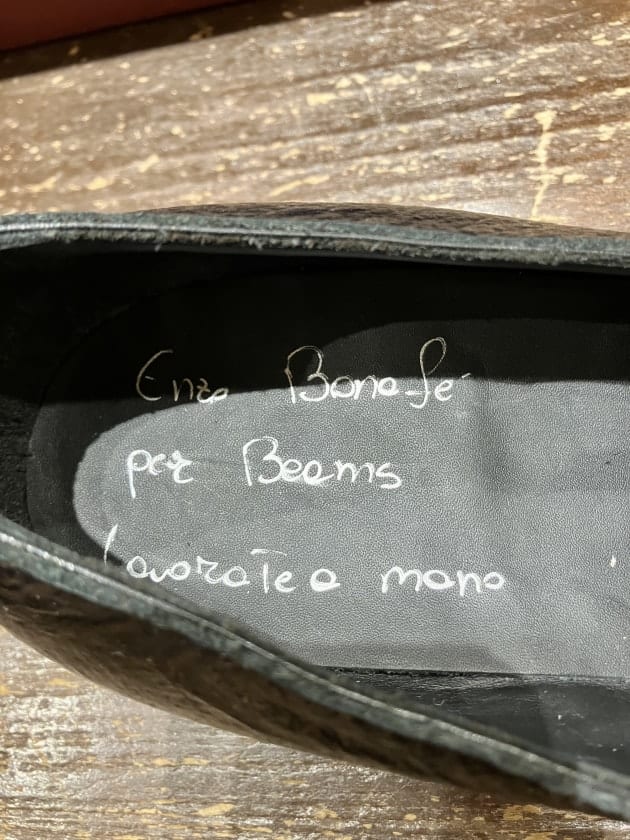 Enzo Bonafé
per Beams
lavorate a mano